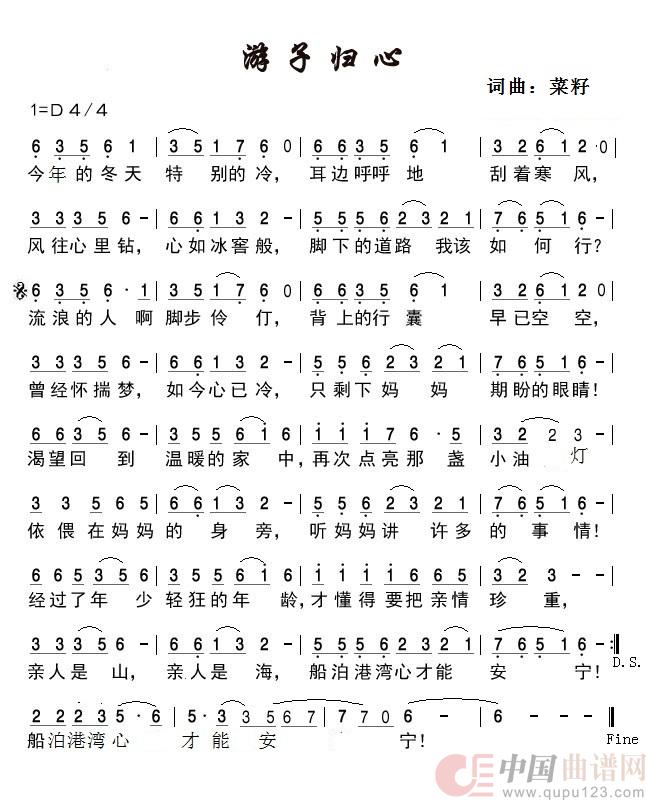 游子归心
词曲：菜籽
1=D 4/4
6 3 5 6 1 | 3 5 1 7 6 0 | 6 6 3 5 6 1 | 3 2 6 1 2· 0 |
今年的冬天 特别的冷，耳边呼呼地 刮着寒风，
3 3 3 5 6 - | 6 6 1 3 2 - | 5 5 5 6 2 3 2 1 | 7 6 5 1 6 - |
风往心里钻，心如冰窖般，脚下的道路 我该如何行？
6 3 5 6 · 1 | 3 5 1 7 6 0 | 6 6 3 5 6 1 | 3 2 6 1 2 0 |
流浪的人啊脚步伶仃，背上的行囊 早已空空，
3 3 3 5 6 - | 6 6 1 3 2 - | 5 5 5 6 2 3 2 1 | 7 6 5 1 6 - |
曾经怀揣梦，如今心已冷，只剩下妈妈 期盼的眼睛！
6 6 3 5 6 | 3 5 5 6 i 6 | i i i 7 6 · 5 | 3 2 2 3 - |
渴望回到 温暖的家中，再次点亮那盏小油灯
3 3 5 6 5 | 6 6 1 3 2 - | 5 5 5 6 2 3 2 1 | 7 6 5 1 6 - |
依偎在妈妈的身旁，听妈妈讲 许多的事情！
6 6 5 3 5 6 | 3 5 5 6 i 6 | i i i 1 6 6 5 | 3 2 2 3 - - |
经过了年少轻狂的年龄，才懂得要把亲情珍重，
3 3 3 5 6 - | 6 6 1 3 2 - | 5 5 5 6 2 3 2 1 | 7 6 5 1 6 - :‖
亲人是山，亲人是海，船泊港湾心才能 安宁！
D.S.
2 2 2 3 5 · 6 | 5 · 3 3 5 6 7 | 7 7 0 6 - | 6 - - - ‖
船泊港湾心 才能安 宁！
Fine
中国曲谱网
www.qupu123.com